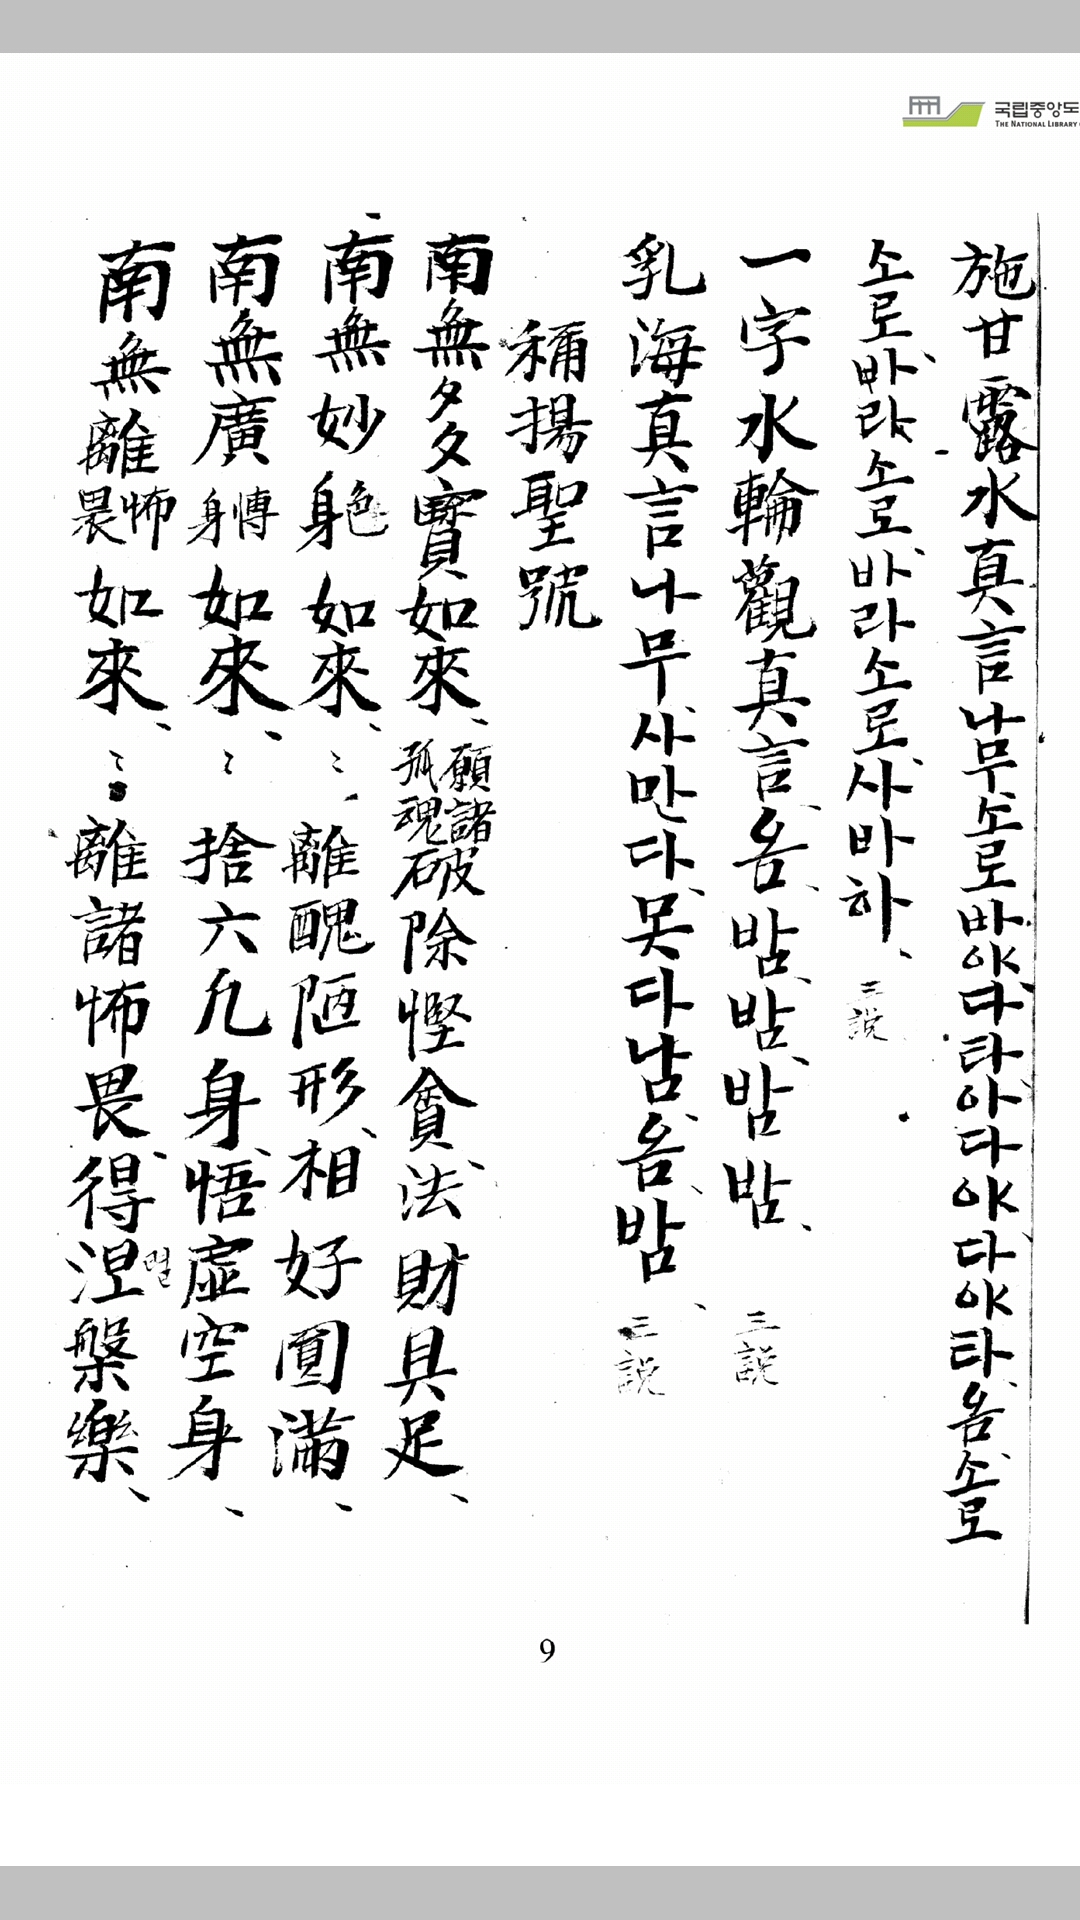 국립중앙도
THE NATIONAL LIBRARY
施甘露水真言나무소로바야다타아다야다야타옴소로
소로바라소로바라소로사바하 三說
一字水輪觀真言옴밤밤밤밤 三說
乳海真言나무사만다못다남옴밤 三說
稱揚聖號
南無多寶如來 願諸孤魂破除慳貪法財具足
南無妙色身如來 〻 離醜陋形相好圓滿
南無廣博身如來 〻 捨六凡身悟虛空身
南無離怖畏如來 〻 離諸怖畏得涅槃樂
9